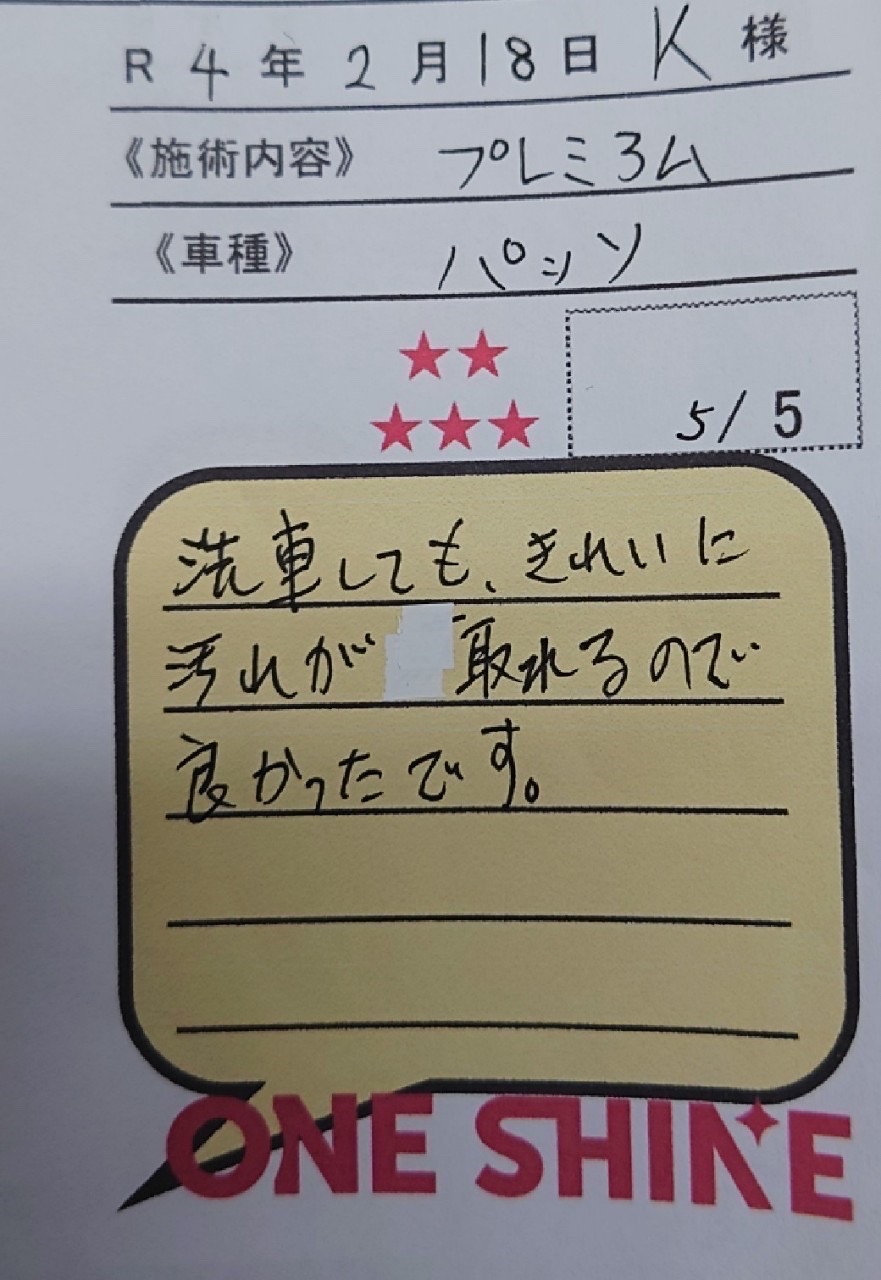 R 4 年 2 月 18 日 K 様
《施術内容》 プレミヨム
《車種》 パッソ
★★
★★★
5/5
洗車しても、きれいに
汚れが 取れるので
良かったです。
ONE SHINE